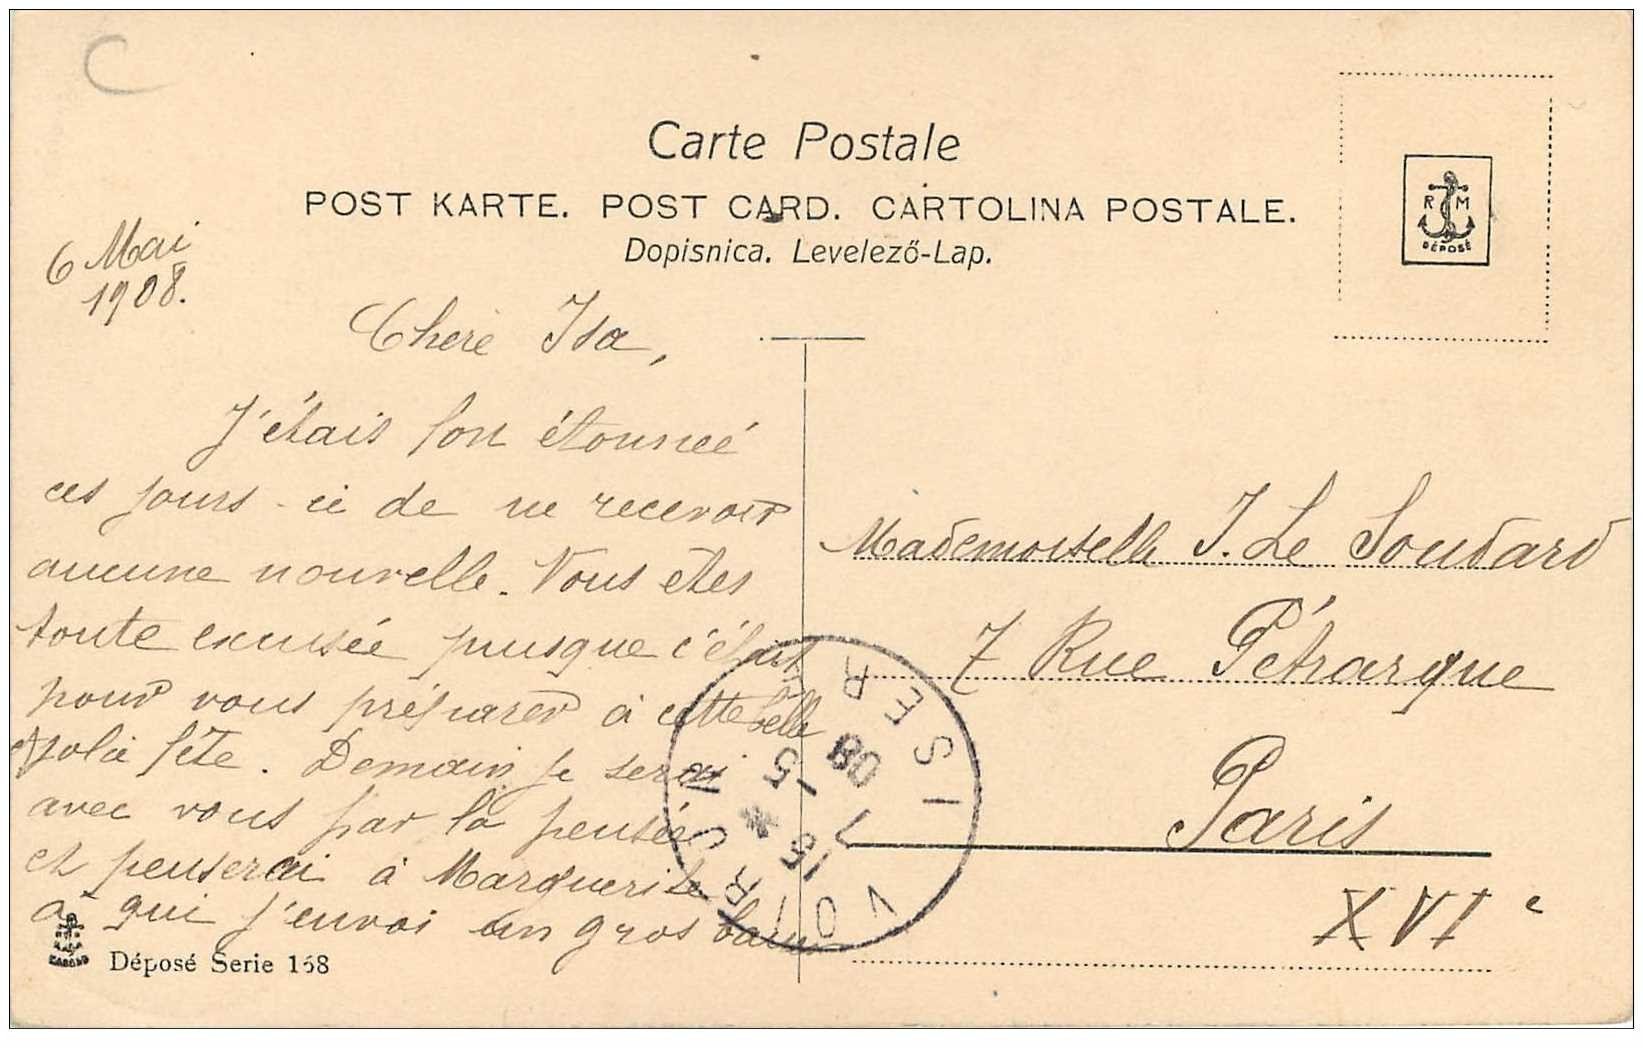 Carte Postale
POST KARTE. POST CARD. CARTOLINA POSTALE.
Dopisnica. Levelező-Lap.
R M
DÉPOSÉ
6 Mai
1908.
Chere Isa,
J'étais fort étonneé
ces jours-ci de ne recevoir
aucune nouvelle. Vous etes
toute excusée pusque c'était
pour vous préparer à cette belle
et jolie fête. Demain je serai
avec vous par la pensée
et penserai à Marguerite
a qui j'envoi un gros
Déposé Serie 168
Mademoiselle I. Le Soudard
7 Rue Pétrarque
Paris
XVI e
VOIRON ISER
15 * 7 - 5 08